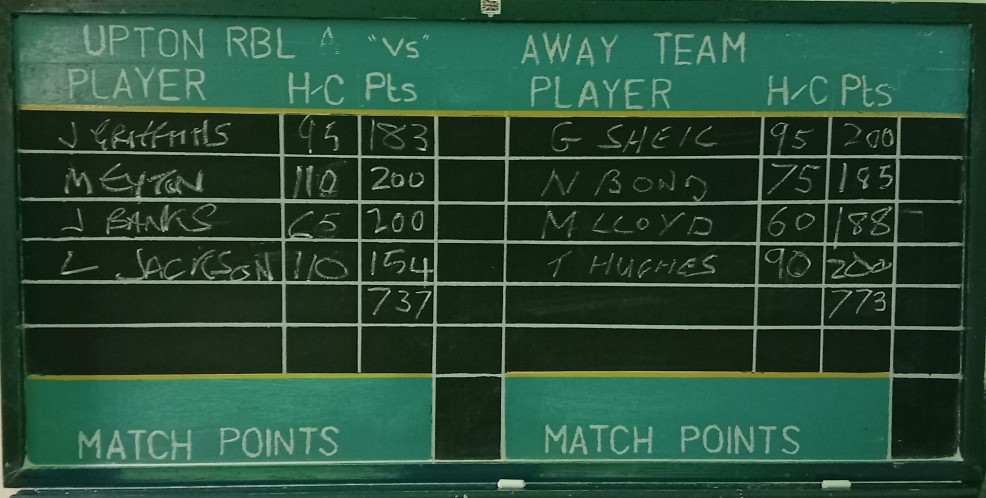 UPTON RBL A "Vs" AWAY TEAM
PLAYER H-C Pts PLAYER H/C Pts
J GRIFFITHS 95 183 G SHEIL 95 200
M EYTON 110 200 N BOND 75 185
J BANKS 65 200 M LLOYD 60 188
L JACKSON 110 154 T HUGHES 90 200
737 773
MATCH POINTS MATCH POINTS